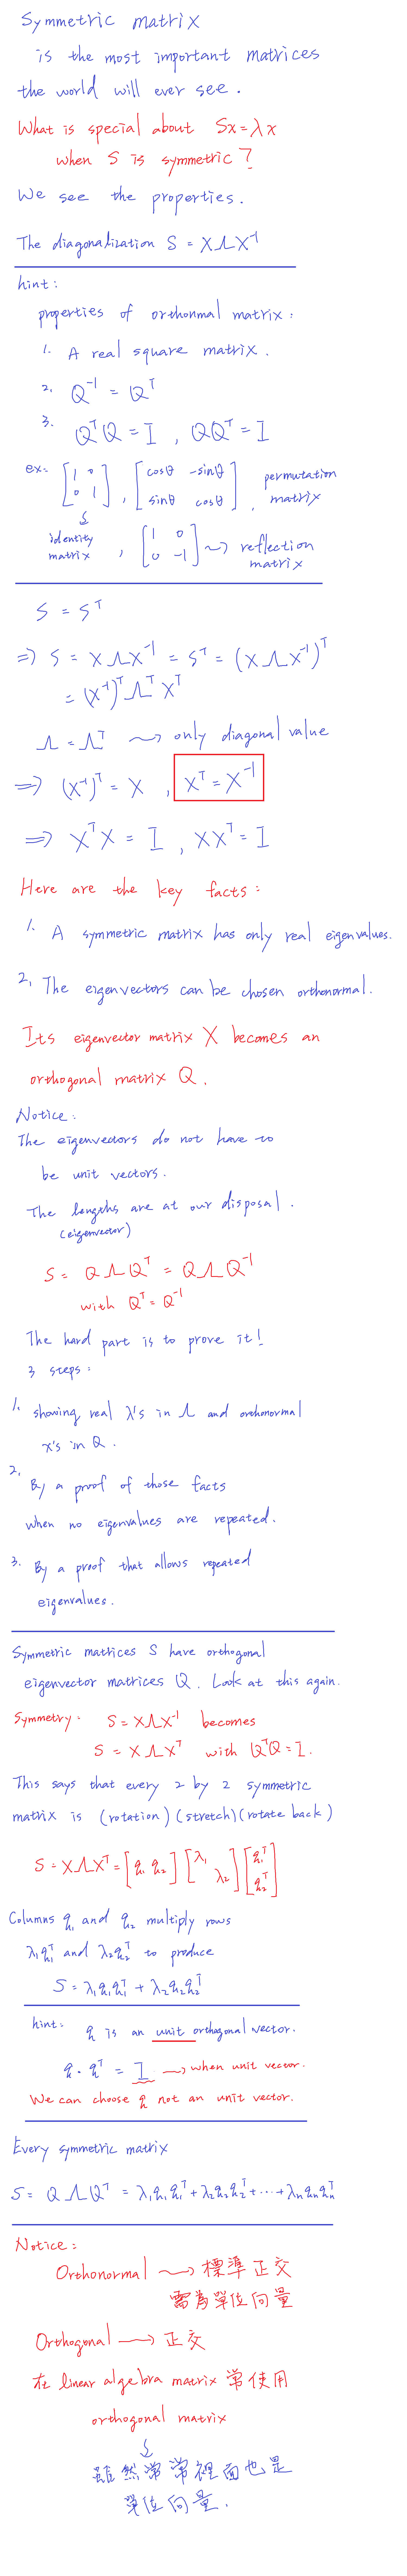 Symmetric matrix
is the most important matrices
the world will ever see.
What is special about Sx = λx
when S is symmetric ?
We see the properties.
The diagonalization S = XΛX⁻¹
hint:
properties of orthonmal matrix :
1. A real square matrix.
2. Q⁻¹ = Qᵀ
3. QᵀQ = I , QQᵀ = I
ex: [1 0; 0 1] , [cosθ -sinθ; sinθ cosθ] , permutation matrix
↓ identity matrix , [1 0; 0 -1] ⤳ reflection matrix
S = Sᵀ
⇒ S = XΛX⁻¹ = Sᵀ = (XΛX⁻¹)ᵀ
= (X⁻¹)ᵀ Λᵀ Xᵀ
Λ = Λᵀ ⤳ only diagonal value
⇒ (X⁻¹)ᵀ = X , Xᵀ = X⁻¹
⇒ XᵀX = I , XXᵀ = I
Here are the key facts :
1. A symmetric matrix has only real eigenvalues.
2. The eigenvectors can be chosen orthonormal.
Its eigenvector matrix X becomes an
orthogonal matrix Q.
Notice:
The eigenvectors do not have to
be unit vectors.
The lengths are at our disposal.
(eigenvector)
S = QΛQᵀ = QΛQ⁻¹
with Qᵀ = Q⁻¹
The hard part is to prove it!
3 steps:
1. showing real λ's in Λ and orthonormal
x's in Q.
2. By a proof of those facts
when no eigenvalues are repeated.
3. By a proof that allows repeated
eigenvalues.
Symmetric matrices S have orthogonal
eigenvector matrices Q. Look at this again.
Symmetry: S = XΛX⁻¹ becomes
S = XΛXᵀ with QᵀQ = I.
This says that every 2 by 2 symmetric
matrix is (rotation)(stretch)(rotate back)
S = XΛXᵀ = [q₁ q₂] [λ₁ ; λ₂] [q₁ᵀ; q₂ᵀ]
Columns q₁ and q₂ multiply rows
λ₁q₁ᵀ and λ₂q₂ᵀ to produce
S = λ₁q₁q₁ᵀ + λ₂q₂q₂ᵀ
hint: q is an unit orthogonal vector.
q · qᵀ = I ⤳ when unit vector.
We can choose q not an unit vector.
Every symmetric matrix
S = QΛQᵀ = λ₁q₁q₁ᵀ + λ₂q₂q₂ᵀ + ··· + λₙqₙqₙᵀ
Notice:
Orthonormal ⤳ 標準正交
需為單位向量
Orthogonal ⟶ 正交
在 linear algebra matrix 常使用
orthogonal matrix
↓
雖然常常裡面也是
單位向量.